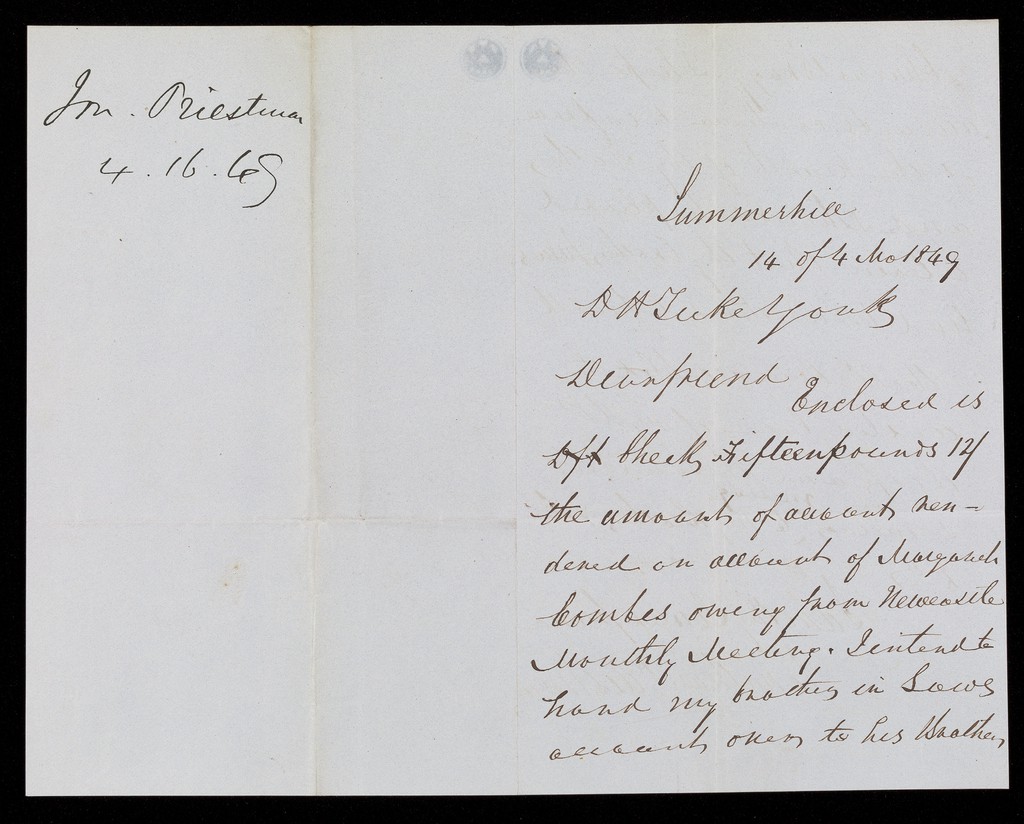 Jon. Priestman
4.16.49
Summerhill
14 of 4 Mo 1849
D H Tuke York
Dear friend
Enclosed is
Dft Check Fifteen pounds 12/
the amount of account ren-
dered on account of Margaret
Combes owing from Newcastle
Monthly Meeting. I intend to
hand my brother in Laws
account over to his Brother,